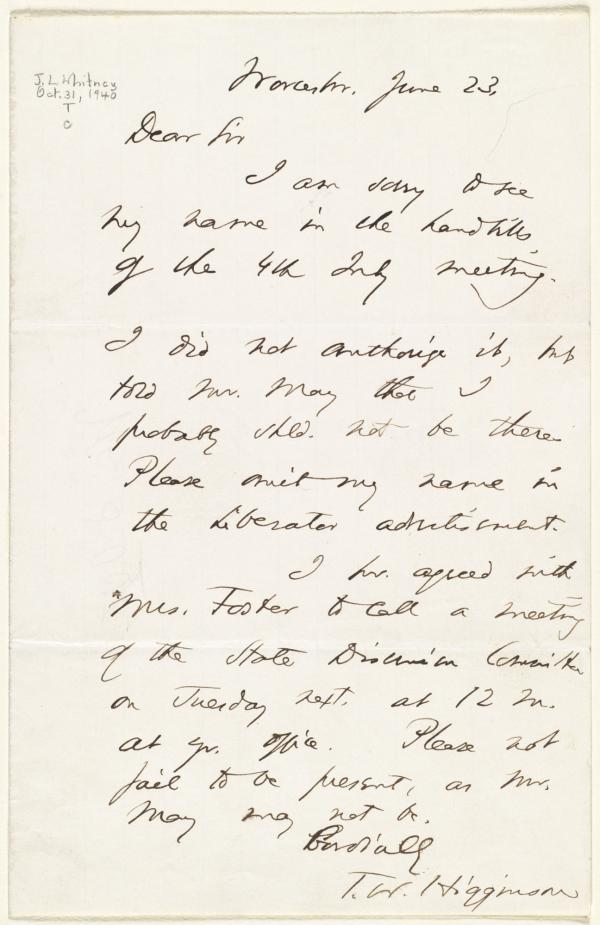 J. L. Whitney
Oct. 31, 1940
T
O
Worcester. June 23.
Dear Sir
I am sorry to see
my name in the handbills
of the 4th July meeting.
I did not authorize it, but
told Mr. May that I
probably shld. not be there.
Please omit my name in
the Liberator advertisement.
I hv. agreed with
Mrs. Foster to call a meeting
of the State Disunion Committee
on Tuesday next. at 12 m.
at yr. office. Please not
fail to be present, as Mr.
May may not be.
Cordially
T. W. Higginson